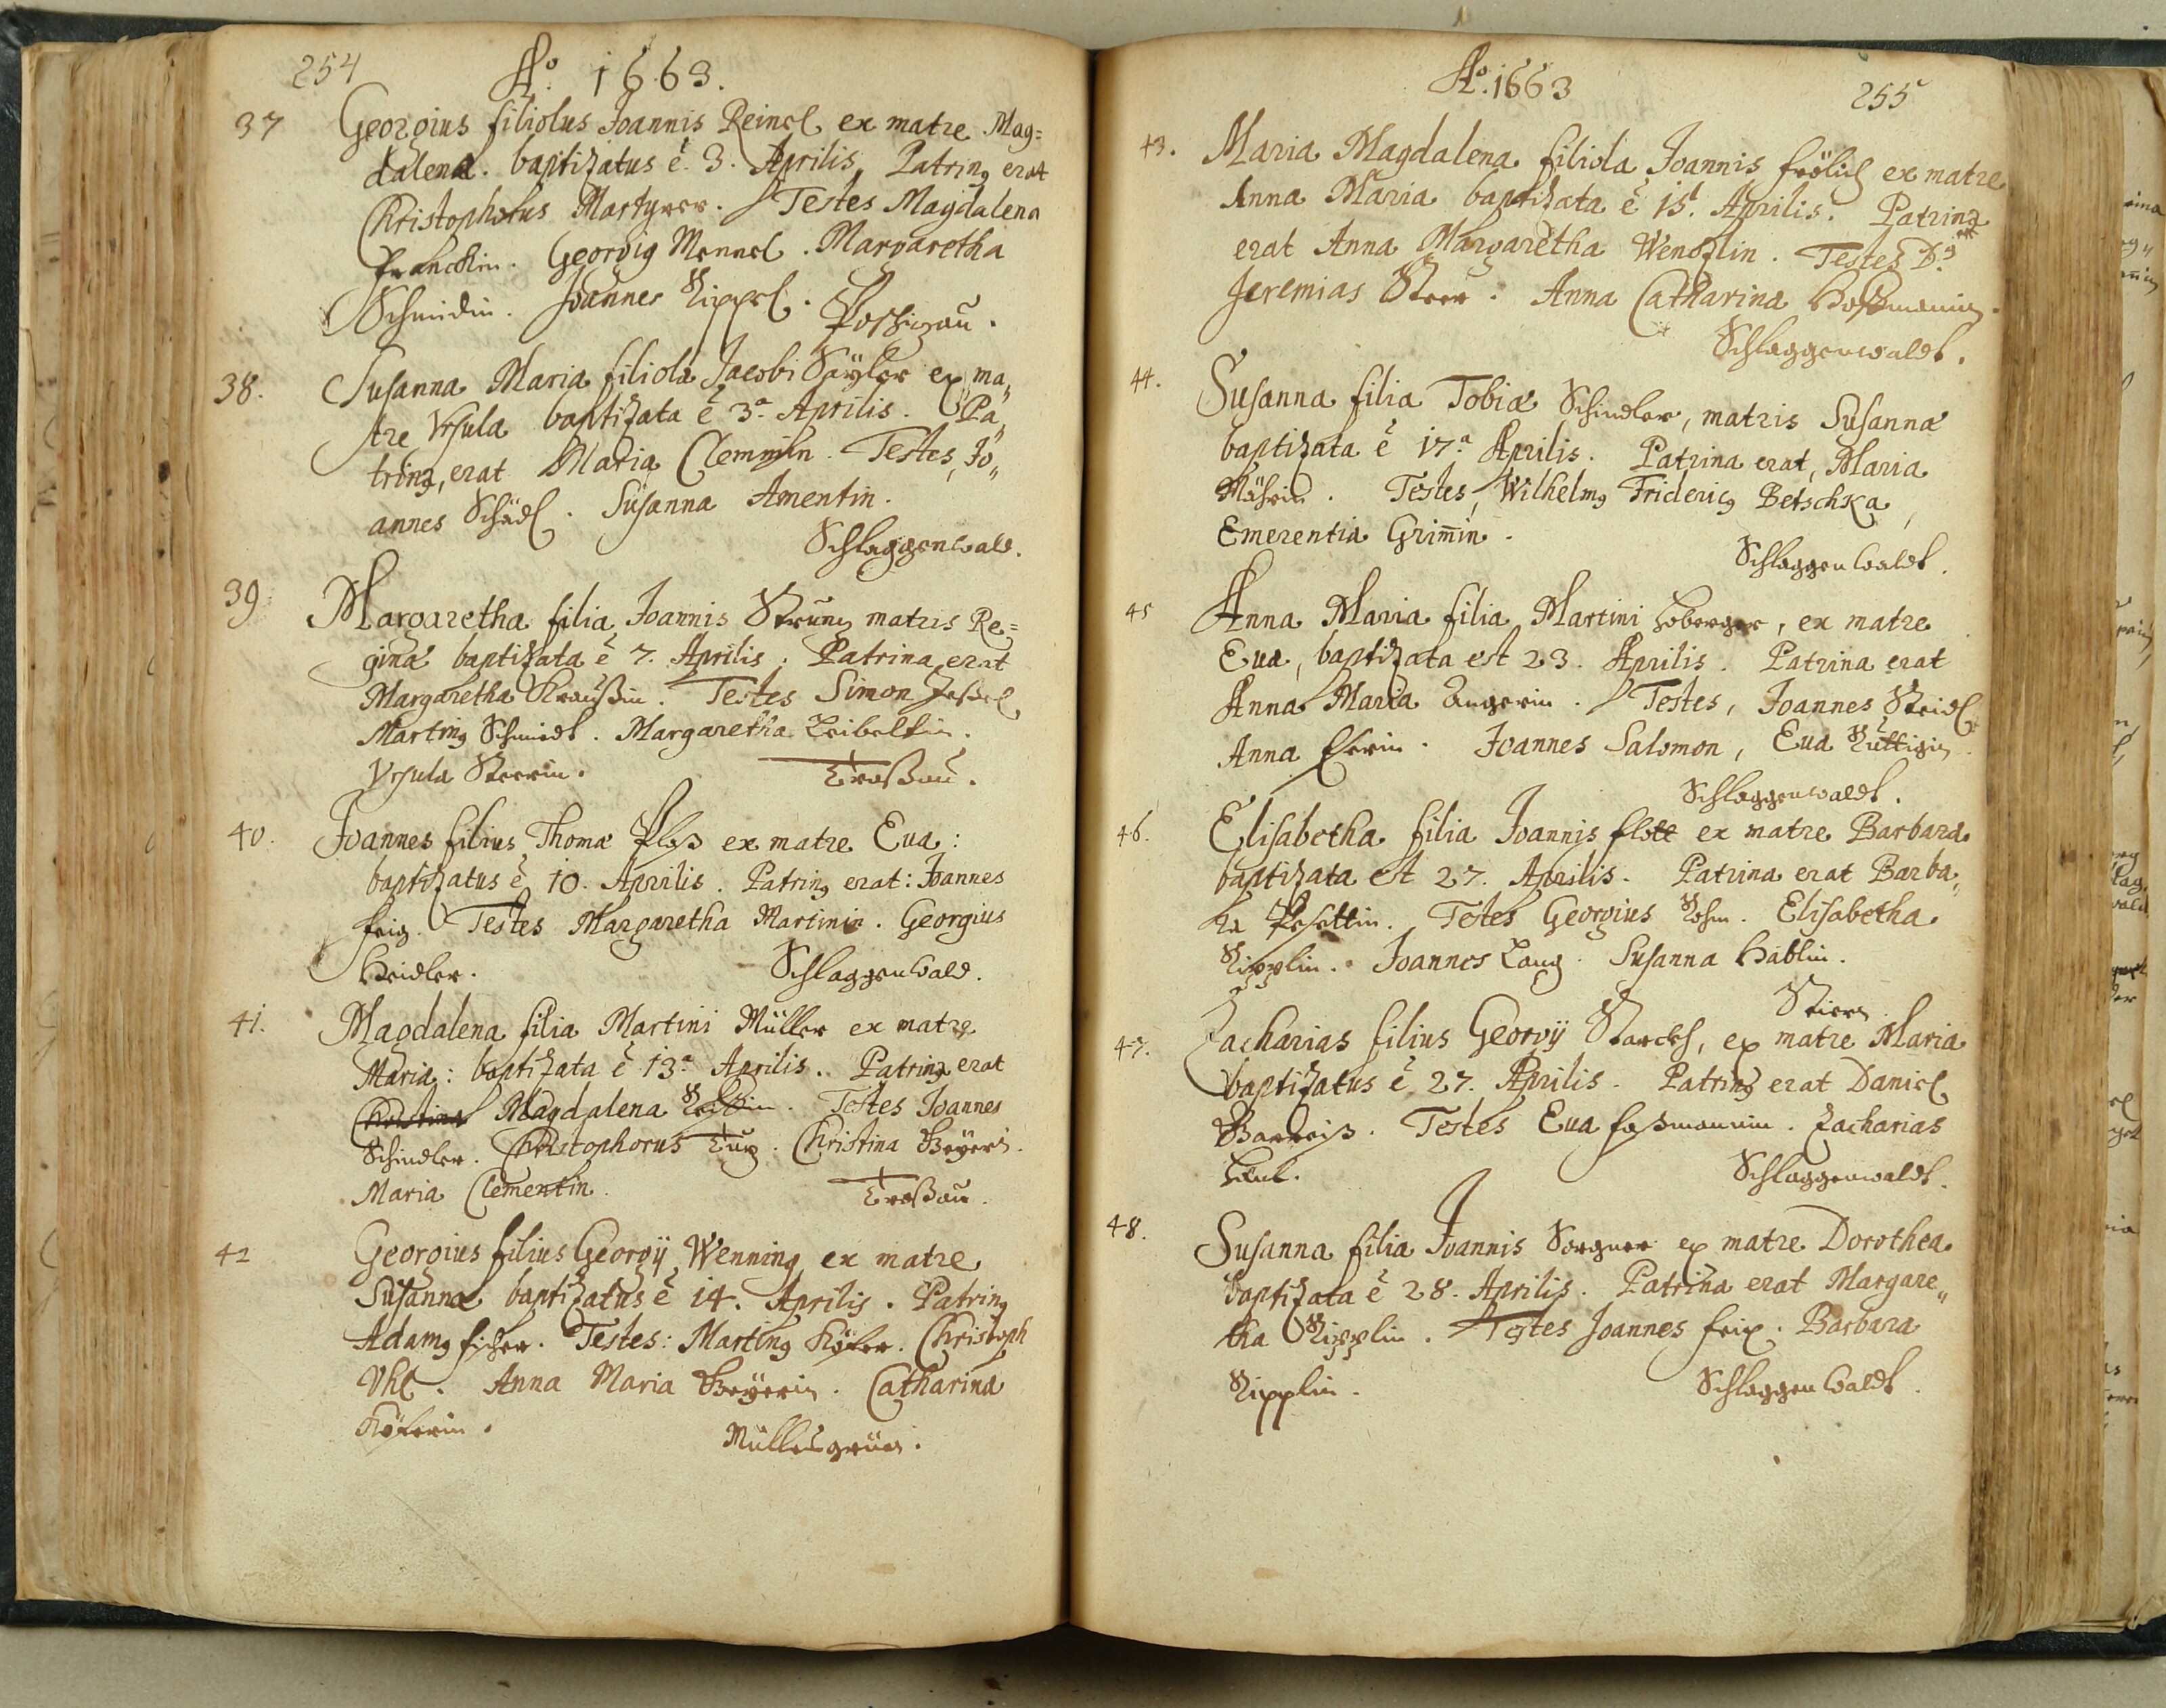 254
Aº. 1663.
37 Georgius filiolus Joannis Reinel ex matre Mag=
dalena. baptizatus ē. 3. Aprilis, Patrinꝰ erat
Christophorus Martyrer. Testes Magdalena
Franckin. Georgiꝰ Mennel. Margaretha
Schmidin. Joannes Kippel.
Poschizau.
38. Susanna Maria filiola Jacobi Sayler ex ma„
tre Vrsula baptizata ē 3ª. Aprilis. Pa„
trina, erat Maria Clementin. Testes, Jo„
annes Schädl. Susanna Amentin.
Schlaggenwald.
39 Margaretha filia Joannis Strunz matris Re=
ginæ baptizata ē 7. Aprilis. Patrina erat
Margaretha Kraußin. Testes Simon
Martinꝰ Schmidt. Margaretha Leibeltin.
Vrsula Steerin. Troßau.
40. Joannes filius Thomæ Ploß ex matre Eua:
baptizatus ē 10. Aprilis. Patrinꝰ erat: Joannes
Feig. Testes Margaretha Martinin. Georgius
Heidler. Schlaggenwald.
41. Magdalena filia Martini Müller ex matre
Maria: baptizata ē 13ª. Aprilis. Patrina erat
Christina Magdalena Testes Joannes
Schindler. Christophorus Christina Beyerin.
Maria Clementin. Troßau.
42 Georgius filius Georgij Wenning ex matre
Susanna baptizatus ē 14. Aprilis. Patrinꝰ
Adamꝰ Testes: Martinꝰ Christoph
Vhl. Anna Maria Beyerin. Catharina
Müllesgrün.
Aº. 1663
255
43. Maria Magdalena filiola Joannis Frölich ex matre
Anna Maria baptizata ē 15. Aprilis. Patrina
erat Anna Margaretha Wenczlin. Testes Dꝰ
Jeremias Steer. Anna Catharina Hoffmanin.
Schlaggenwaldt.
44. Susanna filia Tobiæ Schindler, matris Susannæ
baptizata ē 17ª. Aprilis. Patrina erat, Maria
Testes, Wilhelmꝰ Fridericꝰ Betschka,
Emerentia Grim̄in.
Schlaggenwaldt.
45 Anna Maria filia Martini Loberger, ex matre
Eua, baptizata est 23. Aprilis. Patrina erat
Anna Maria Ungerin. Testes, Joannes Steidl
Anna Joannes Salomon, Eua Kuttigin
Schlaggenwaldt.
46. Elisabetha filia Joannis ex matre Barbara
baptizata est 27. Aprilis. Patrina erat Barba„
ra Testes Georgius Elisabetha
Kipplin. Joannes Lang. Susanna Hablin.
Stiern
47. Zacharias filius Georgij Starckh, ex matre Maria
baptizatus ē 27. Aprilis. Patrinꝰ erat Daniel
Barreiß. Testes Eua Faßmannin. Zacharias
Schlaggenwaldt.
48. Susanna filia Joannis Sorgner ex matre Dorothea
baptizata ē 28. Aprilis. Patrina erat Margare„
tha Kipplin. Testes Joannes Feix. Barbara
Kipplin. Schlaggenwaldt.